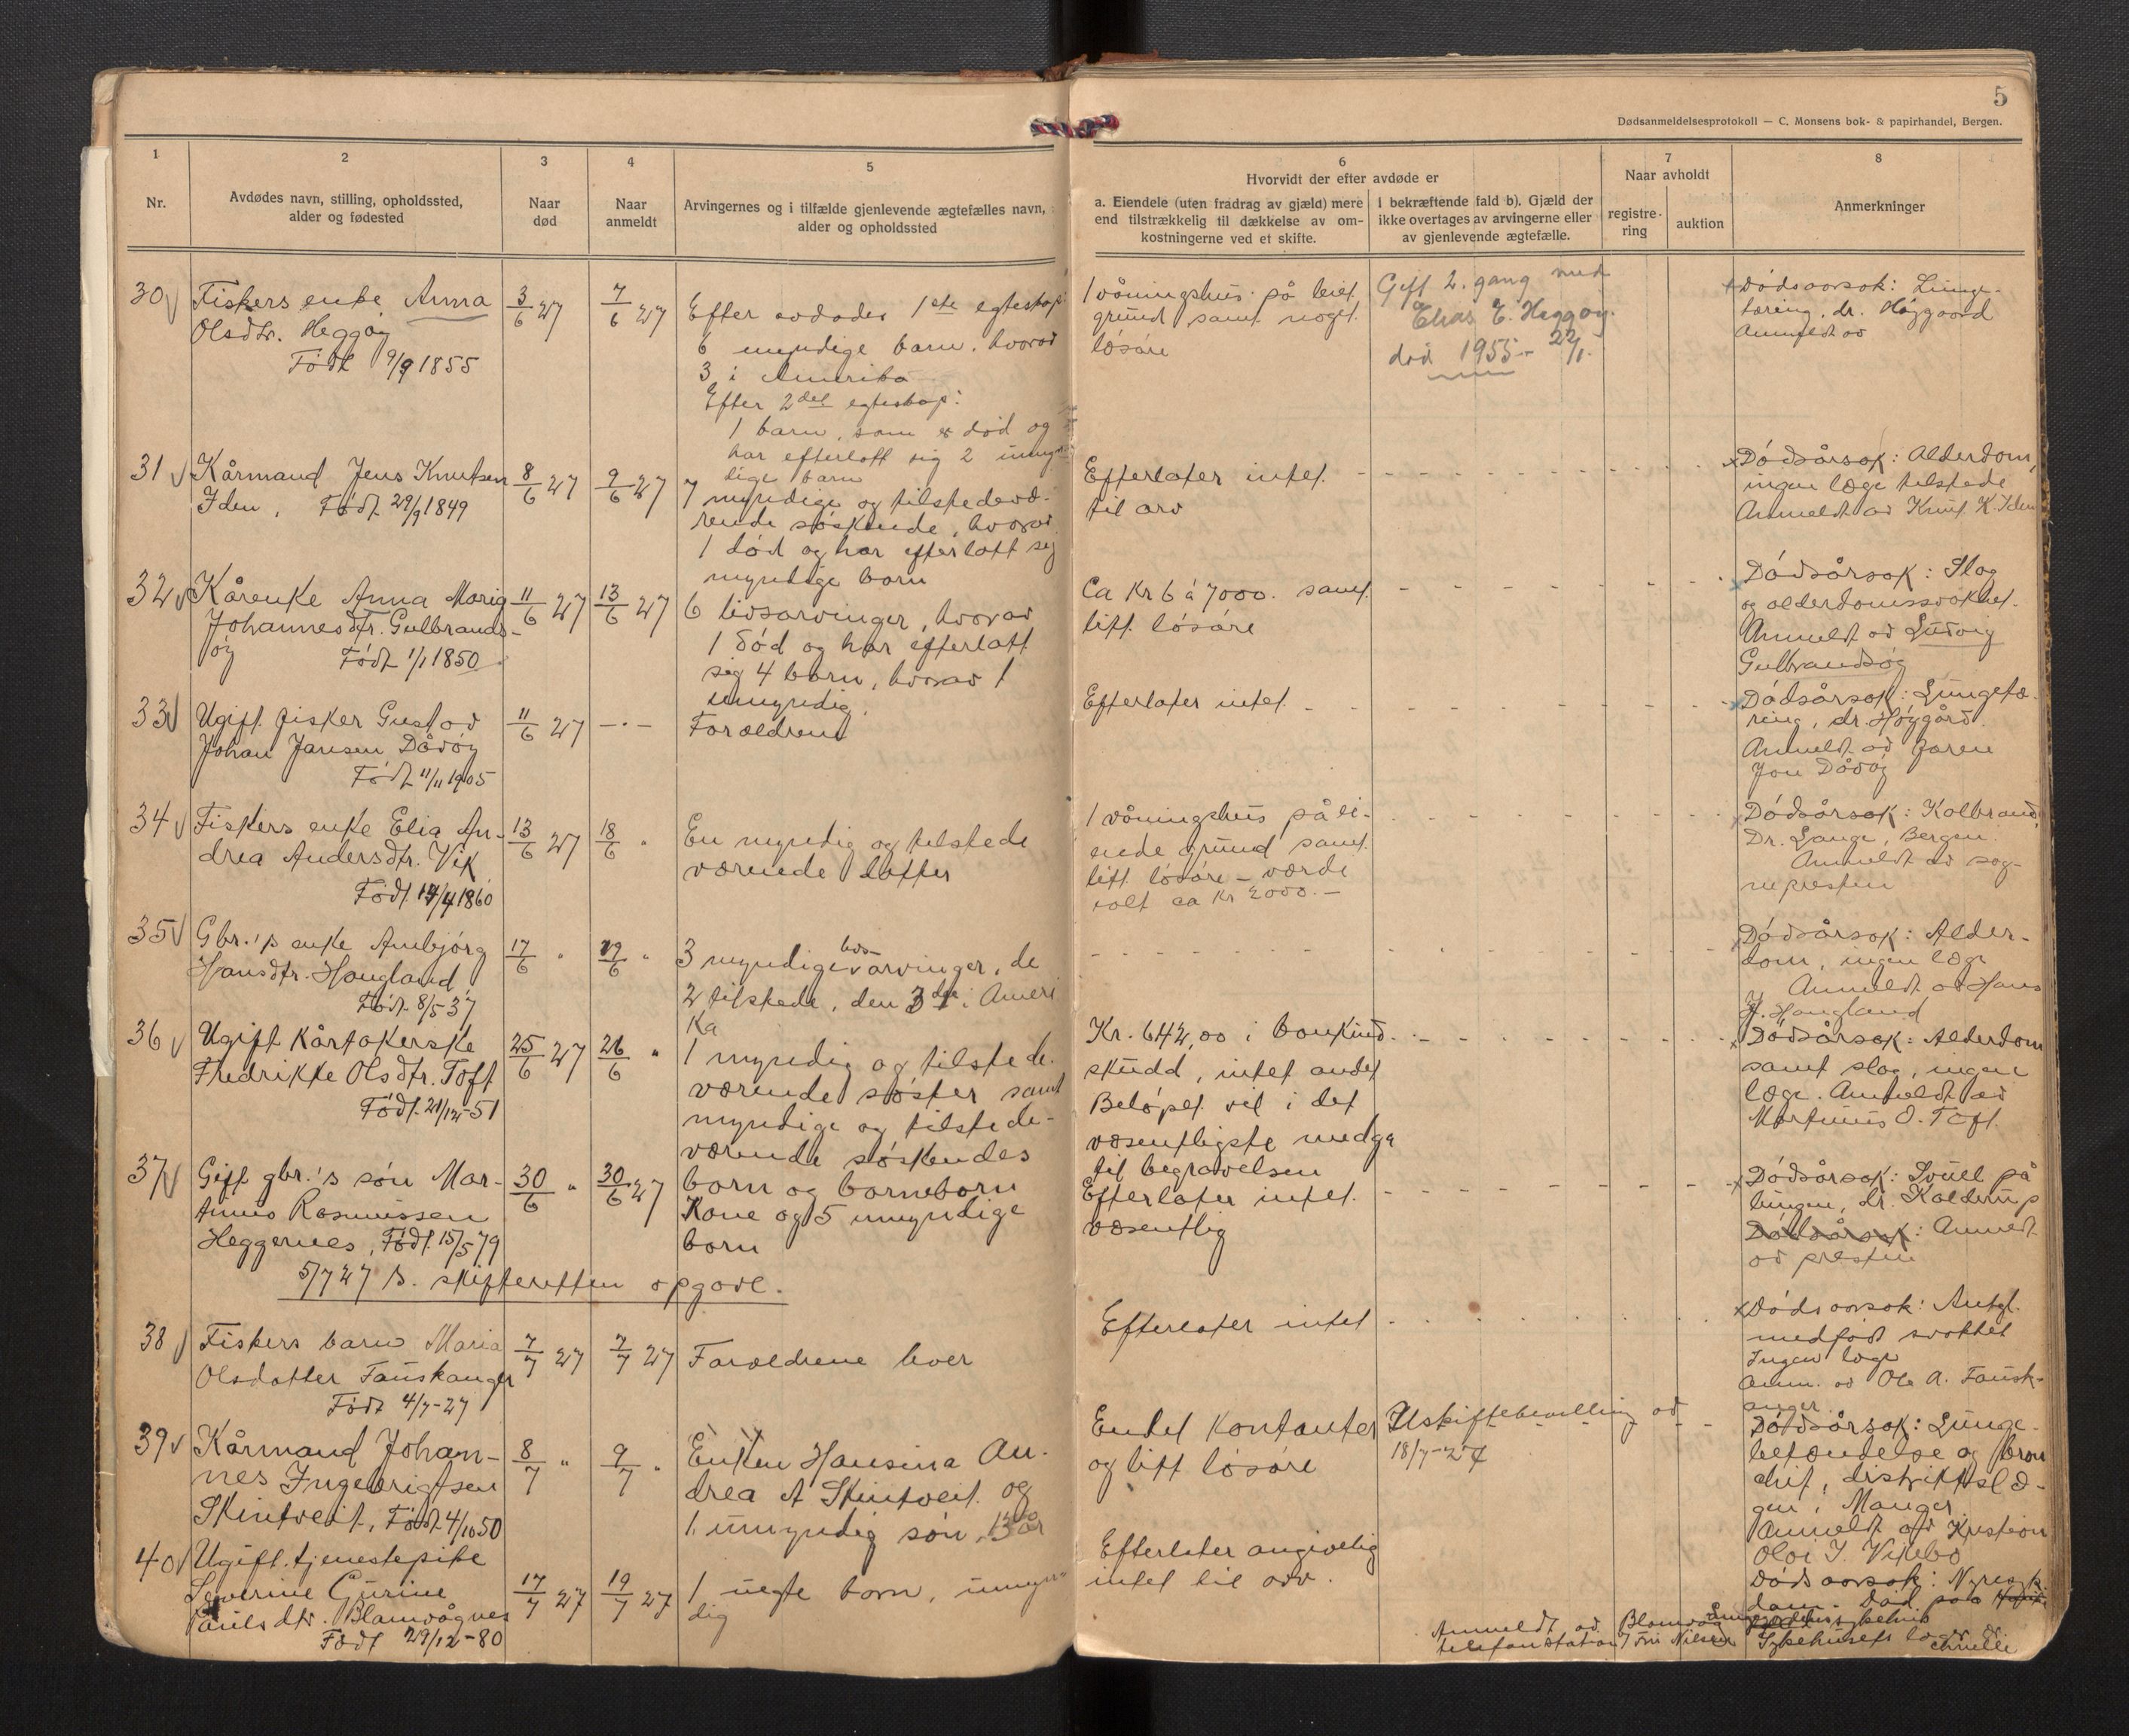 5
Dødsanmeldelsesprotokoll — C. Monsens bok- & papirhandel, Bergen.
1
Nr.
2
Avdødes navn, stilling, opholdssted,
alder og fødested
3
Naar
død
4
Naar
anmeldt
5
Arvingernes og i tilfælde gjenlevende ægtefælles navn,
alder og opholdssted
6
Hvorvidt der efter avdøde er
a. Eiendele (uten fradrag av gjæld) mere
end tilstrækkelig til dækkelse av om-
kostningerne ved et skifte.
i bekræftende fald b). Gjæld der
ikke overtages av arvingerne eller
av gjenlevende ægtefælle.
7
Naar avholdt
registre-
ring
auktion
8
Anmerkninger
30
Fiskers enke Anna
Olsdtr. Heggøy
Født 9/9 1855
3/6 27
7/6 27
Efter avdødes 1ste egteskap:
6 myndige barn, hvorav
3 i Amerika
Efter 2det egteskap:
1 barn, som er død og
har efterlatt sig 2 umyn-
dige barn
1 våningshus på leiet
grund samt noget
løsøre
Gift 2. gang med
Elias E. Heggøy.
død 1955 - 22/1.
Dødsaarsak: Lunge-
tæring, dr. Høygaard
Anmeldt av
31
Kårmand Jens Knutsen
Iden, Født 29/9 1849
8/6 27
9/6 27
7 myndige og tilstedevæ-
rende søskende, hvorav
1 død og har efterlatt sig
myndige barn
Efterlater intet
til arv
Dødsårsak: Alderdom,
ingen læge tilstede
Anmeldt av Knut K. Iden
32
Kårenke Anna Marig
Johannesdtr. Gulbrands-
øy Født 1/1 1850
11/6 27
13/6 27
6 livsarvinger, hvorav
1 død og har efterlatt
sig 4 barn, hvorav 1
umyndig.
Ca Kr 6 à 7000. samt
litt løsøre
Dødsårsak: Slag
og alderdomssvakhet.
Anmeldt av Ludvig
Gulbrandsøy
33
Ugift fisker Gustav
Johan Jansen Dåvøy
Født 11/11 1905
11/6 27
— · —
Forældrene
Efterlater intet
Dødsårsak: Lungetæ-
ring, dr. Høygård.
Anmeldt av faren
Jon Dåvøy
34
Fiskers enke Elia An-
drea Andersdtr. Vik
Født 14/4 1860
13/6 27
18/6 "
En myndig og tilstede
værende datter
1 våningshus på lei-
ende grund samt
litt løsøre - værdi
ialt ca kr 2000.—
Dødsårsak: Kolbrand,
Dr. Lange, Bergen.
Anmeldt av sog-
nepresten
35
Gbr.'s enke Anbjørg
Hansdtr. Haugland
Født 8/5 37
17/6 "
19/6 "
3 myndige livs-
arvinger, de
2 tilstede, den 3dje i Ameri
ka
Dødsårsak: Alder-
dom, ingen læge
Anmeldt av Hans
J. Haugland
36
Ugift kårtakerske
Fredrikke Olsdtr. Toft
Født 21/12-51
25/6 27
26/6 "
1 myndig og tilstede-
værende søster samt
myndige og tilstede-
værende søskendes
barn og barnebarn
Kr. 642,00 i bankind-
skudd, intet andet
Beløpet vil i det
væsentligste medgå
til begravelsen
Dødsårsak: Alderdom
samt slag, ingen
læge. Anmeldt av
Martinus O. Toft
37
Gift gbr.'s søn Mar-
tinus Rasmussen
Heggernes, Født 15/5 79
30/6 "
30/6 27
Kone og 5 umyndige
barn
Efterlater intet
væsentlig
Dødsårsak: Svull på
lungen, dr. Kalderup
Dødsårsak: Anmeldt
av presten
5/7 27 s. skifteretten opgave.
38
Fiskers barn Maria
Olsdatter Fauskanger
Født 4/7-27
7/7 27
7/7 27
Forældrene lever
Efterlater intet
Dødsaarsak: Antgl.
medfødt svakhet
Ingen læge
Anm. av Ole A. Fausk-
anger
39
Kårmand Johan-
nes Ingebrigtsen
Skintveit, Født 4/10 50
8/7 "
9/7 "
Enken Hansina An-
drea A Skintveit og
1 umyndig søn, 15 år
Endel kontanter
og litt løsøre
Uskiftebevilling av
18/7-27
Dødsårsak: Lunge-
betændelse og bron
chit, distriktslæ-
gen i Manger
Anmeldt av Kristian
Olai I. Vikebø
40
Ugift tjenestepike
Severine Gurine
Paulsdtr. Blomvågnes
Født 29/12-80
17/7 27
19/7 27
1 uegte barn, umyn-
dig
Efterlater angivelig
intet til arv.
Dødsaarsak: Nyresyk-
dom. Død paa
Sykehusets læge dr.
Anmeldt av Blomvåg
telefonstation v/ Fru Nilsen